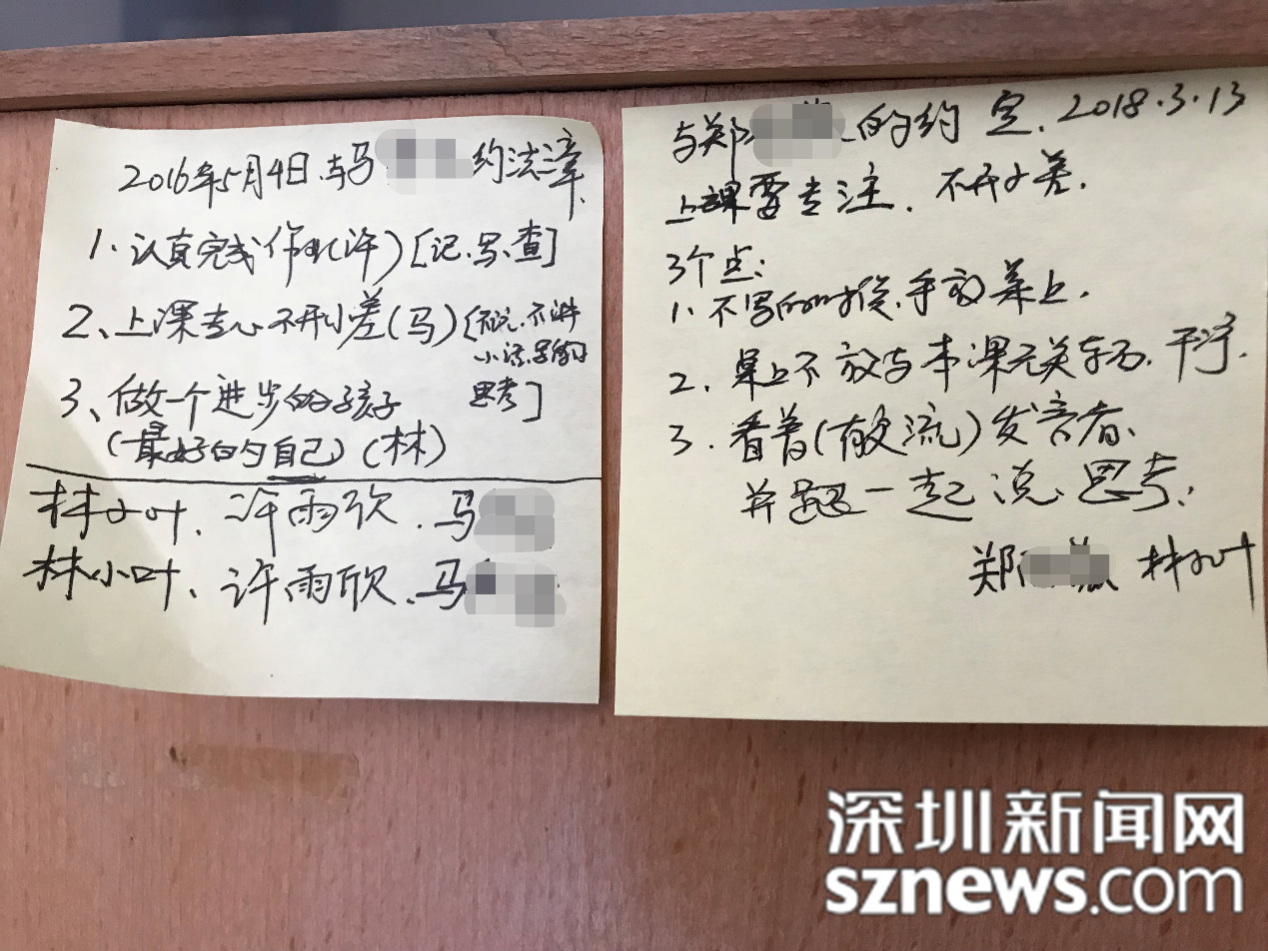 2016年5月4日与马 约法三章
1.认真完成作业(许)[记.写.查]
2、上课专心不开小差(马)[不玩.不讲
小话.
思考]
3、做一个进步的孩子
(最好的自己)(林)
林小叶、许雨欣.马
林小叶、许雨欣.马
与郑 的约定.2018.3.13
上课要专注.不开小差.
3个点:
1.不写的时候.手放桌上.
2.桌上不放与本课无关东西.干净.
3.看着(有交流)发言者、
并跟一起说、思考;
郑 林小叶
深圳新闻网
sznews.com